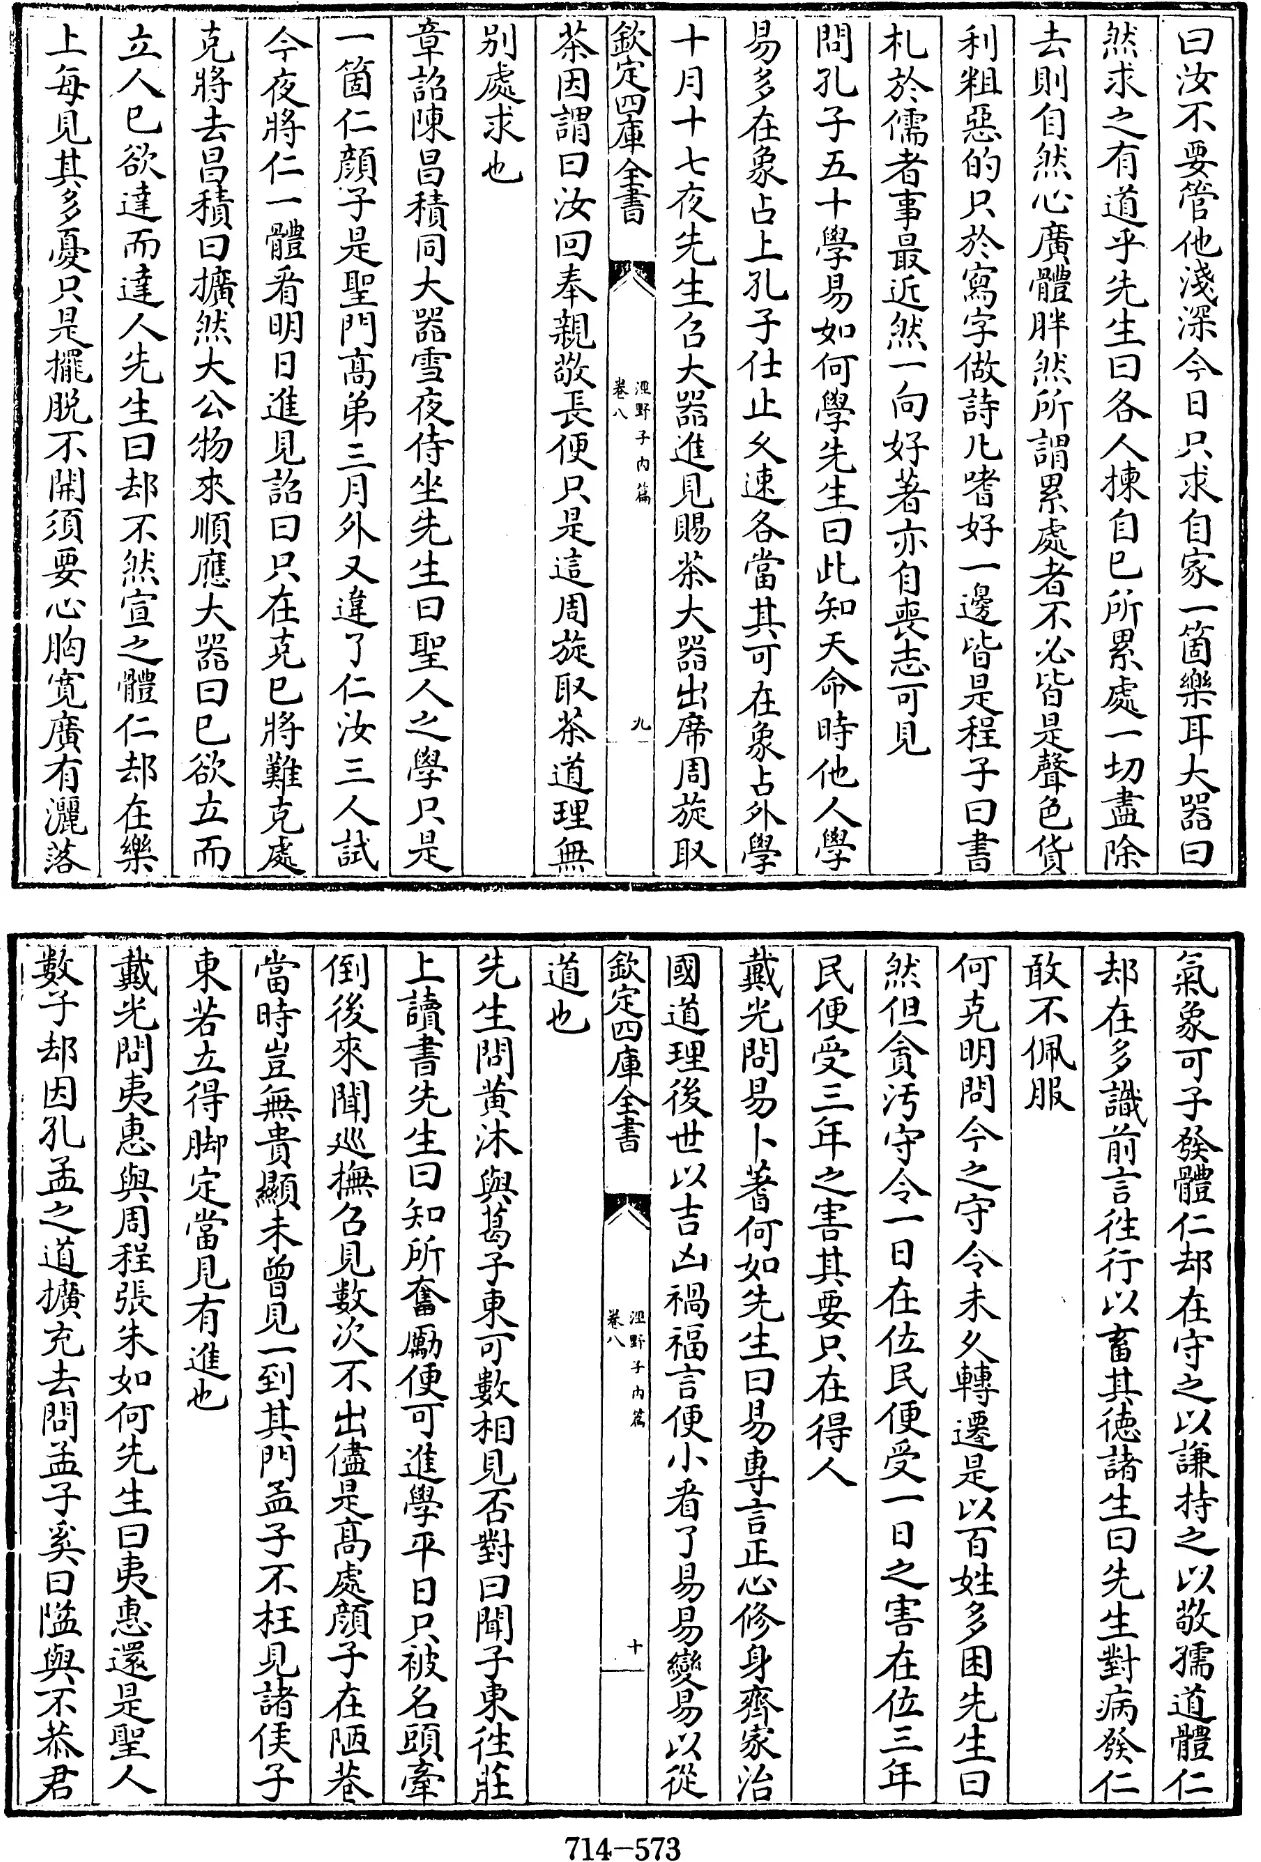 曰汝不要管他淺深今日只求自家一箇樂耳大器曰
然求之有道乎先生曰各人揀自已所累處一切盡除
去則自然心廣體胖然所謂累處者不必皆是聲色貨
利粗惡的只於寫字做詩凡嗜好一邊皆是程子曰書
札於儒者事最近然一向好著亦自喪志可見
問孔子五十學易如何學先生曰此知天命時他人學
易多在象占上孔子仕止久速各當其可在象占外學
十月十七夜先生召大器進見賜茶大器出席周旋取
欽定四庫全書
涇野子內篇
卷八
九
茶因謂曰汝回奉親敬長便只是這周旋取茶道理無
別處求也
章詔陳昌積同大器雪夜侍坐先生曰聖人之學只是
一箇仁顔子是聖門高弟三月外又違了仁汝三人試
今夜將仁一體看明日進見詔曰只在克已將難克處
克將去昌積曰擴然大公物來順應大器曰已欲立而
立人已欲達而達人先生曰却不然宣之體仁却在樂
上每見其多憂只是擺脱不開須要心胸寛廣有灑落
氣象可子發體仁却在守之以謙持之以敬孺道體仁
却在多識前言徃行以畜其德諸生曰先生對病發仁
敢不佩服
何克明問今之守令未久轉遷是以百姓多困先生曰
然但貪汚守令一日在位民便受一日之害在位三年
民便受三年之害其要只在得人
戴光問易卜蓍何如先生曰易專言正心修身齊家治
國道理後世以吉凶禍福言便小看了易易變易以從
欽定四庫全書
涇野子內篇
卷八
十
道也
先生問黄沐與葛子東可數相見否對曰聞子東徃莊
上讀書先生曰知所奮勵便可進學平日只被名頭牽
倒後來聞巡撫召見數次不出儘是高處顔子在陋巷
當時豈無貴顯未曾見一到其門孟子不枉見諸侯子
東若立得脚定當見有進也
戴光問夷惠與周程張朱如何先生曰夷惠還是聖人
數子却因孔孟之道擴充去問孟子奚曰隘與不恭君
714-573